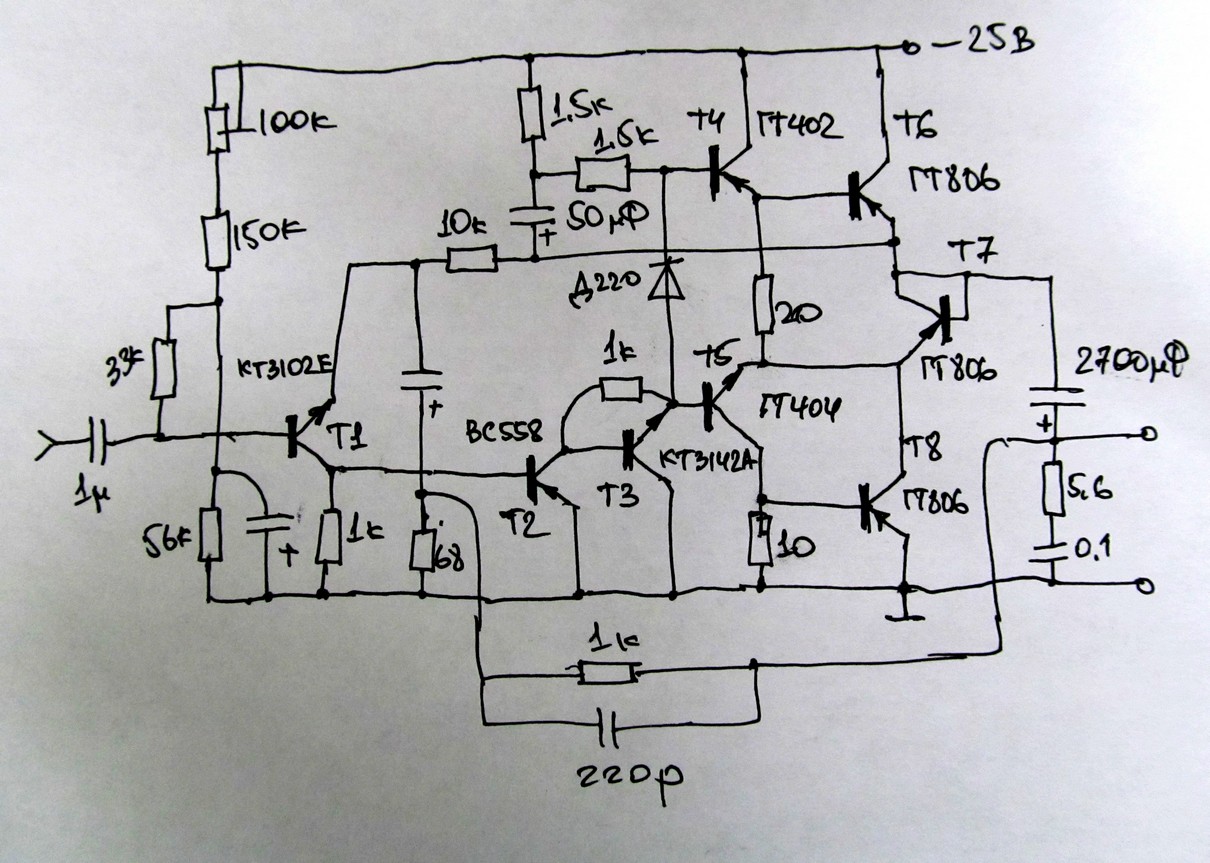 −25В
100к
1.5к
1.5к
Т4
ГТ402
Т6
ГТ806
150к
10к
50μФ
+
Т7
Д220
20
33к
КТ3102Е
1к
Т5
ГТ806
2700μФ
+
+
ВС558
ГТ404
Т1
КТ3142А
Т8
1μ
Т2
Т3
ГТ806
5,6
56к
+
1к
68
10
0,1
1к
220p